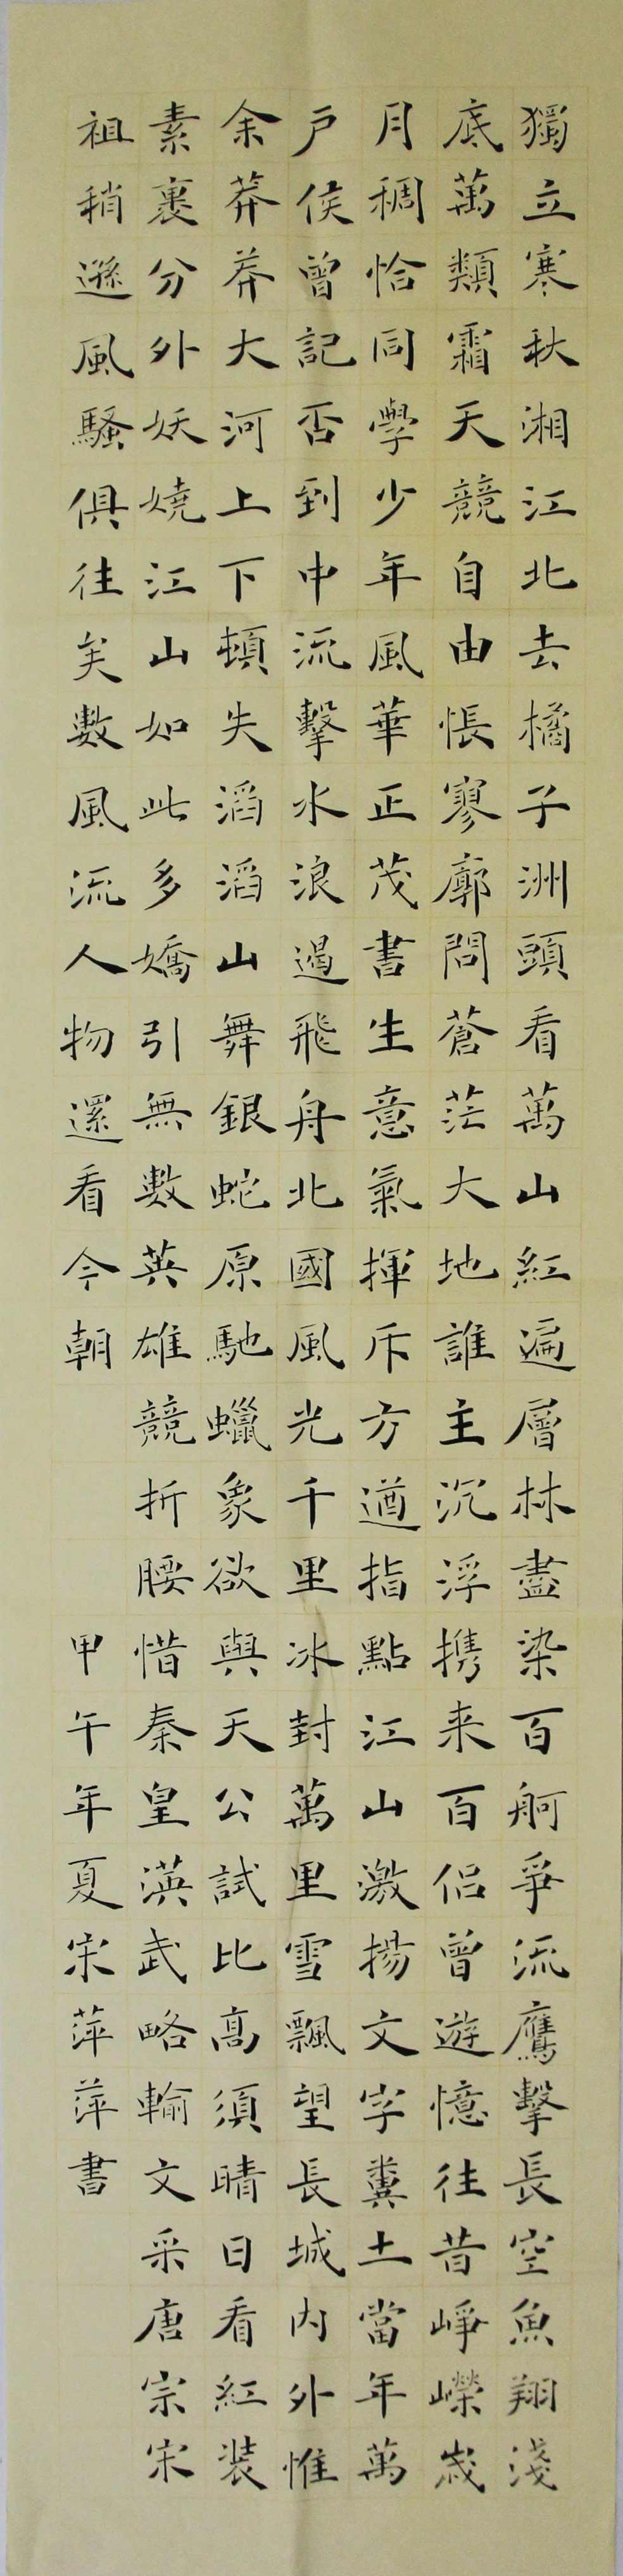 獨立寒秋湘江北去橘子洲頭看萬山紅遍層林盡染百舸爭流鷹擊長空魚翔淺
底萬類霜天競自由悵寥廓問蒼茫大地誰主沉浮携来百侣曾遊憶往昔崢嶸歲
月稠恰同學少年風華正茂書生意氣揮斥方遒指點江山激揚文字糞土當年萬
戶侯曾記否到中流擊水浪遏飛舟北國風光千里冰封萬里雪飄望長城内外惟
余莽莽大河上下頓失滔滔山舞銀蛇原馳蠟象欲與天公試比高須晴日看紅装
素裹分外妖嬈江山如此多嬌引無數英雄競折腰惜秦皇漢武略輸文采唐宗宋
祖稍遜風騷俱往矣數風流人物還看今朝 甲午年夏宋萍萍書